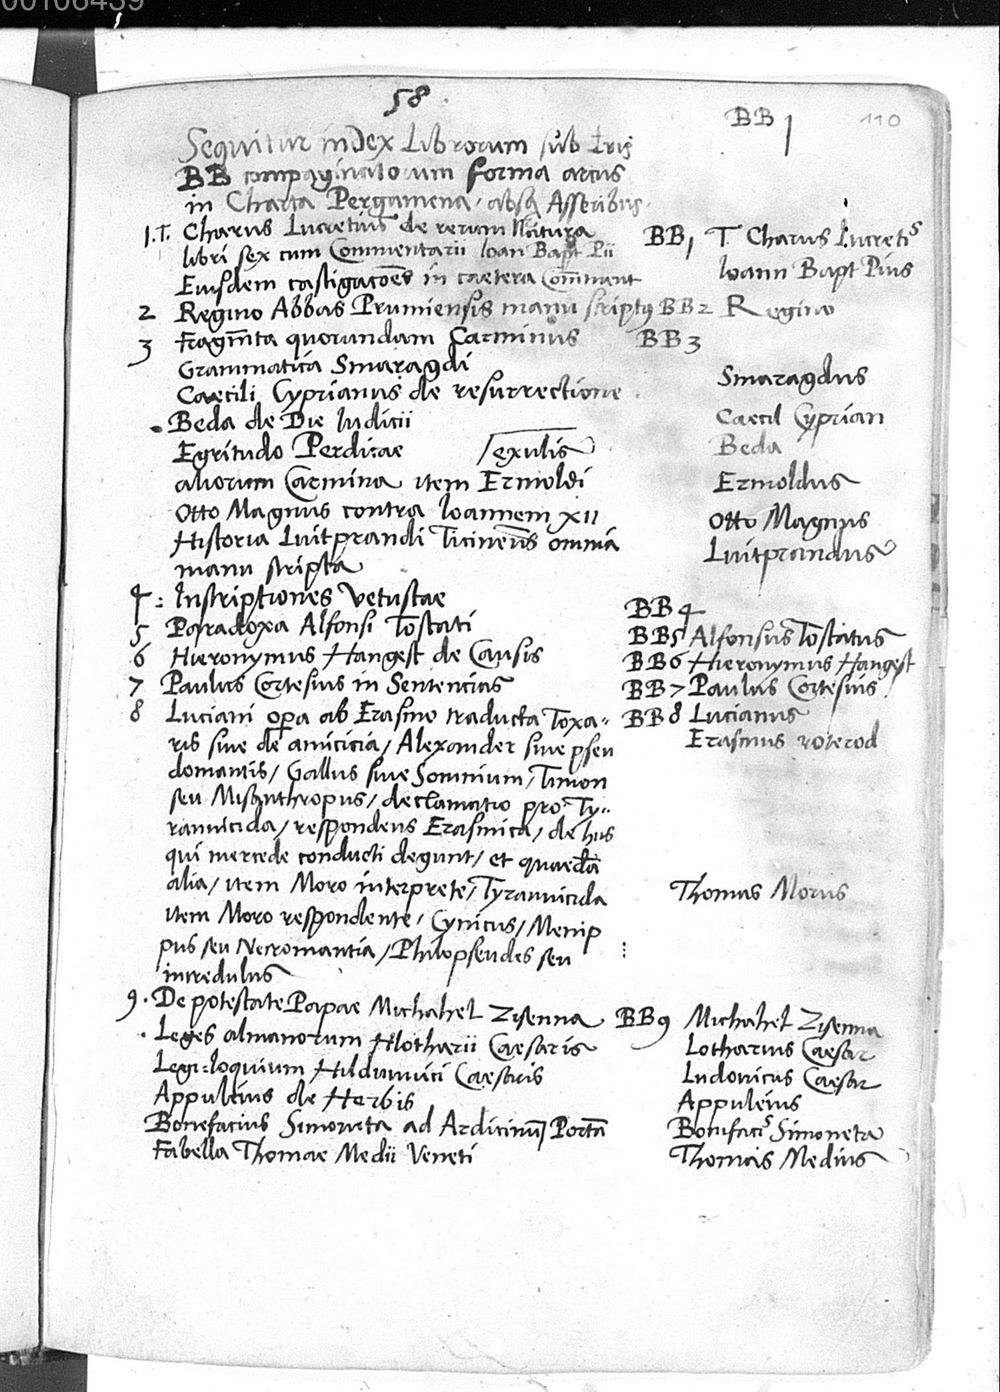 00106439
58
BB 1
110
Sequitur index Librorum sub lr̃is
BB compaginatorum forma arcus
in Charta Pergamena, absq̃ Asseribus.
1. T. Charus Lucretius de rerum Natura BB1 T. Charus Lucreti9
libri sex cum Commentarii Ioan Bapt Pii Ioann Bapt Pius
Eiusdem castigacões in caetera Com̃ent
2 Regino Abbas Prumiensis manu scriptus BB2 Regino
3 Fragm̃ta quorundam Carminus BB3
Grammatica Smaragdi Smaragdus
Caecili Cyprianus de resurrectione. Caecil Cyprian
Beda de Die Iudicii Beda
Egritudo Perdicae exulis
aliorum Carmina item Ermoldi Ermoldus
Otto Magnus contra Ioannem XII Otto Magnus
Historia Luitprandi Ticinens̃ omnia Luitprandus
manu scripta
4: Inscriptiones Vetustae BB4
5 Paradoxa Alfonsi Tostati BB5 Alfonsius Tostatus
6 Hieronymus Hangest de Causis BB6 Hieronymus Hangest
7 Paulus Cortesius in Sentencias BB7 Paulus Cortesius
8 Luciani opa ab Erasmo traducta Toxa= BB8 Lucianus
ris siue de amicicia/ Alexander siue pseu Erasmus roterod
domantis/ Gallus siue Somnium/ Timon
seu Misanthropus/ declamatio pro Ty=
rannicida/ respondens Erasmica/ de his
qui mercede conducti degunt/ et quaedã
alia/ item Moro interprete/ Tyrannicida Thomas Morus
item Moro respondente/ Cynicus/ Menip
pus seu Necromantia/ Philopseudes seu
incredulus
9. De potestate Papae Michahel Zisenna BB9 Michahel Zisenna
Leges almanorum Hlotharii Caesaris Lotharius Caesar
Legi=loquium Hlduuuici Caesaris Ludouicus Caesar
Appuleius de Herbis Appuleius
Bonefacius Simoneta ad Ardicinum Portã Bonifaci9 Simoneta
Fabella Thomae Medii Veneti Thomas Medius